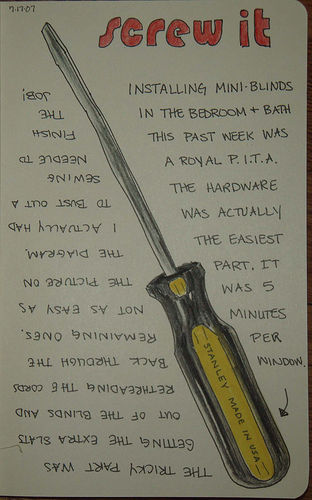 7.17.07
screw it
INSTALLING MINI-BLINDS
IN THE BEDROOM + BATH
THIS PAST WEEK WAS
A ROYAL P.I.T.A.
THE HARDWARE
WAS ACTUALLY
THE EASIEST
PART. IT
WAS 5
MINUTES
PER
WINDOW.
THE TRICKY PART WAS
GETTING THE EXTRA SLATS
OUT OF THE BLINDS AND
RETHREADING THE CORDS
BACK THROUGH THE
REMAINING ONES.
NOT AS EASY AS
THE PICTURE ON
THE DIAGRAM.
I ACTUALLY HAD
TO BUST OUT A
SEWING
NEEDLE TO
FINISH
THE
JOB!
STANLEY MADE IN USA